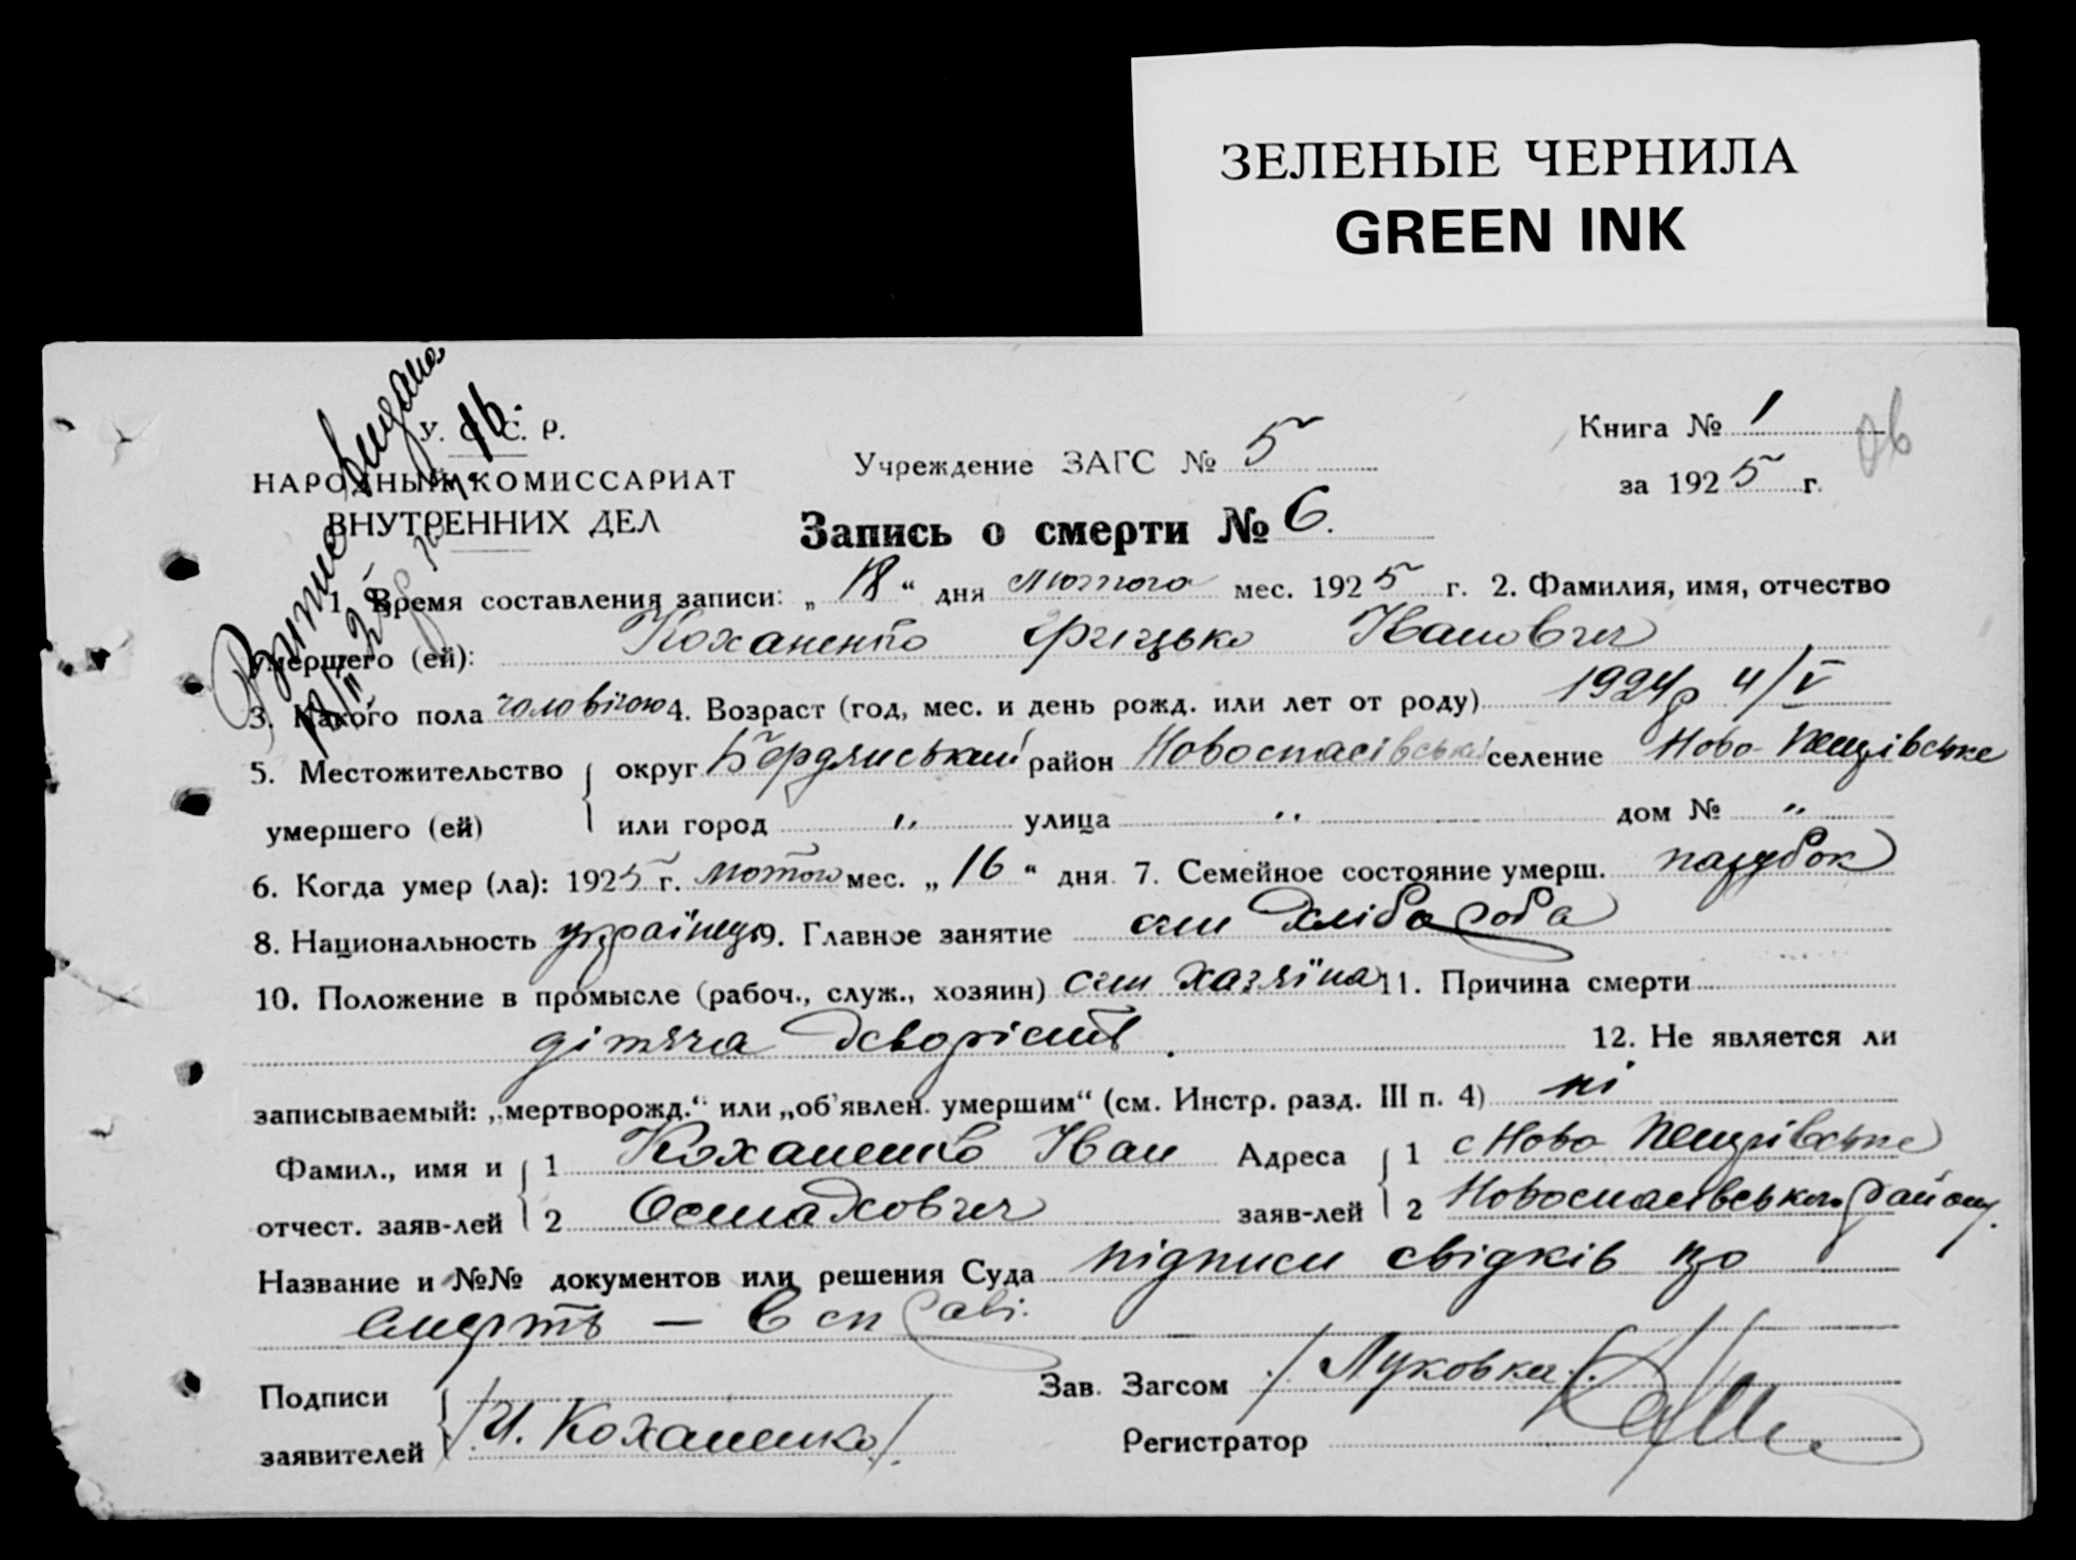 ЗЕЛЕНЫЕ ЧЕРНИЛА
GREEN INK
Книга № 1
У. С. С. Р.
Учреждение ЗАГС № 5
за 1925 г.
НАРОДНЫЙ КОМИССАРИАТ
ВНУТРЕННИХ ДЕЛ
Запись о смерти № 6.
1. Время составления записи: „18“ дня лютого мес. 1925 г. 2. Фамилия, имя, отчество
умершего (ей): Коханенко Грицько Іванович
3. Какого пола чоловічою 4. Возраст (год, мес. и день рожд. или лет от роду) 1924р 4/V
5. Местожительство округ Бердянський район Новоспасівський селение Ново-
умершего (ей) или город " улица " дом № "
6. Когда умер (ла): 1925 г. лютого мес. „16“ дня 7. Семейное состояние умерш. парубок
8. Национальность українець 9. Главное занятие син хлібороба
10. Положение в промысле (рабоч., служ., хозяин) син хазяїна 11. Причина смерти
дітяча 12. Не является ли
записываемый: „мертворожд.“ или „об'явлен. умершим“ (см. Инстр. разд. III п. 4) ні
Фамил., имя и 1 Коханенко Іван Адреса 1 с Ново-
отчест. заяв-лей 2 заяв-лей 2 Новоспасівського району.
Название и №№ документов или решения Суда підписи свідків що
смерть — в справі.
Подписи Зав. Загсом /Луковка/
заявителей /И. Коханенко/. Регистратор